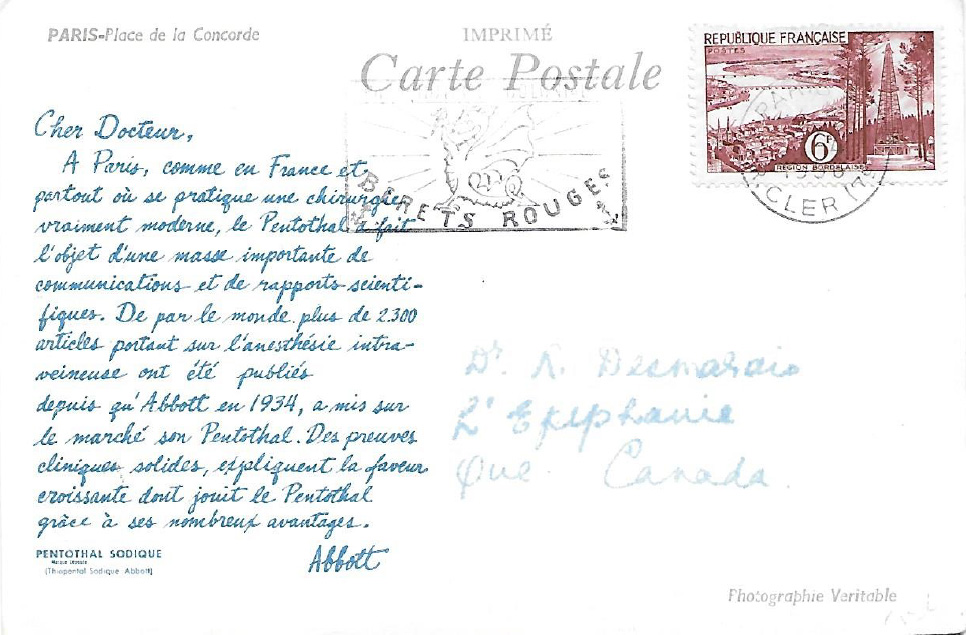 PARIS-Place de la Concorde
IMPRIMÉ
Carte Postale
REPUBLIQUE FRANÇAISE
POSTES
6F
REGION BORDELAISE
CLER
BERETS ROUGES
Cher Docteur,
A Paris, comme en France et
partout où se pratique une chirurgie
vraiment moderne, le Pentothal a fait
l'objet d'une masse importante de
communications et de rapports scienti-
fiques. De par le monde plus de 2.300
articles portant sur l'anesthésie intra-
veineuse ont été publiés
depuis qu'Abbott en 1934, a mis sur
le marché son Pentothal. Des preuves
cliniques solides, expliquent la faveur
croissante dont jouit le Pentothal
grâce à ses nombreux avantages.
Abbott
PENTOTHAL SODIQUE
Marque Déposée
(Thiopental Sodique Abbott)
Dr A. Desmarais
L'Epiphanie
Que Canada.
Photographie Veritable